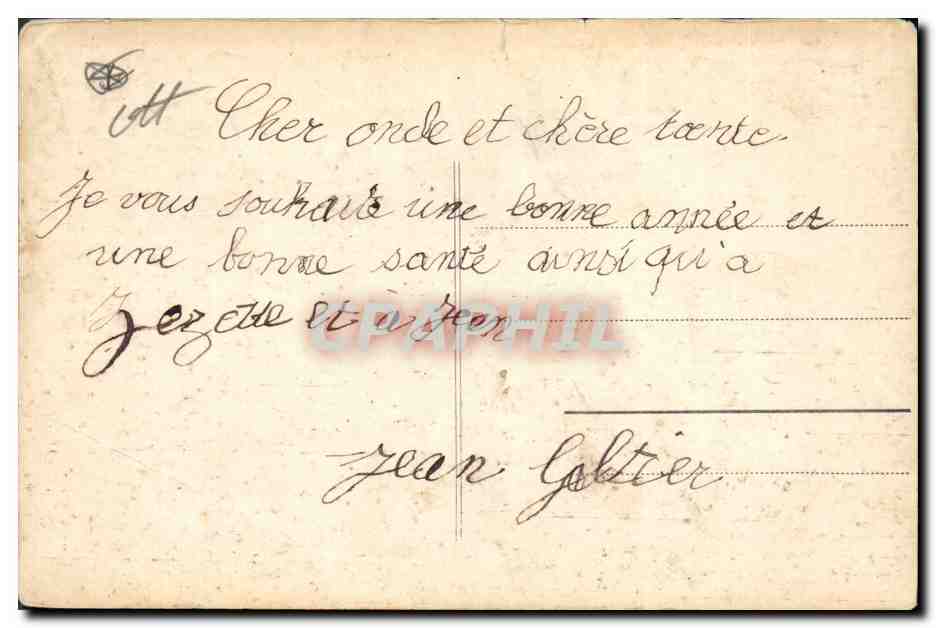 Cher oncle et chère tante.
Je vous souhaite une bonne année et
une bonne santé ainsi qu'à
Zezette et à Jean
CPAPHIL
Jean Galtier